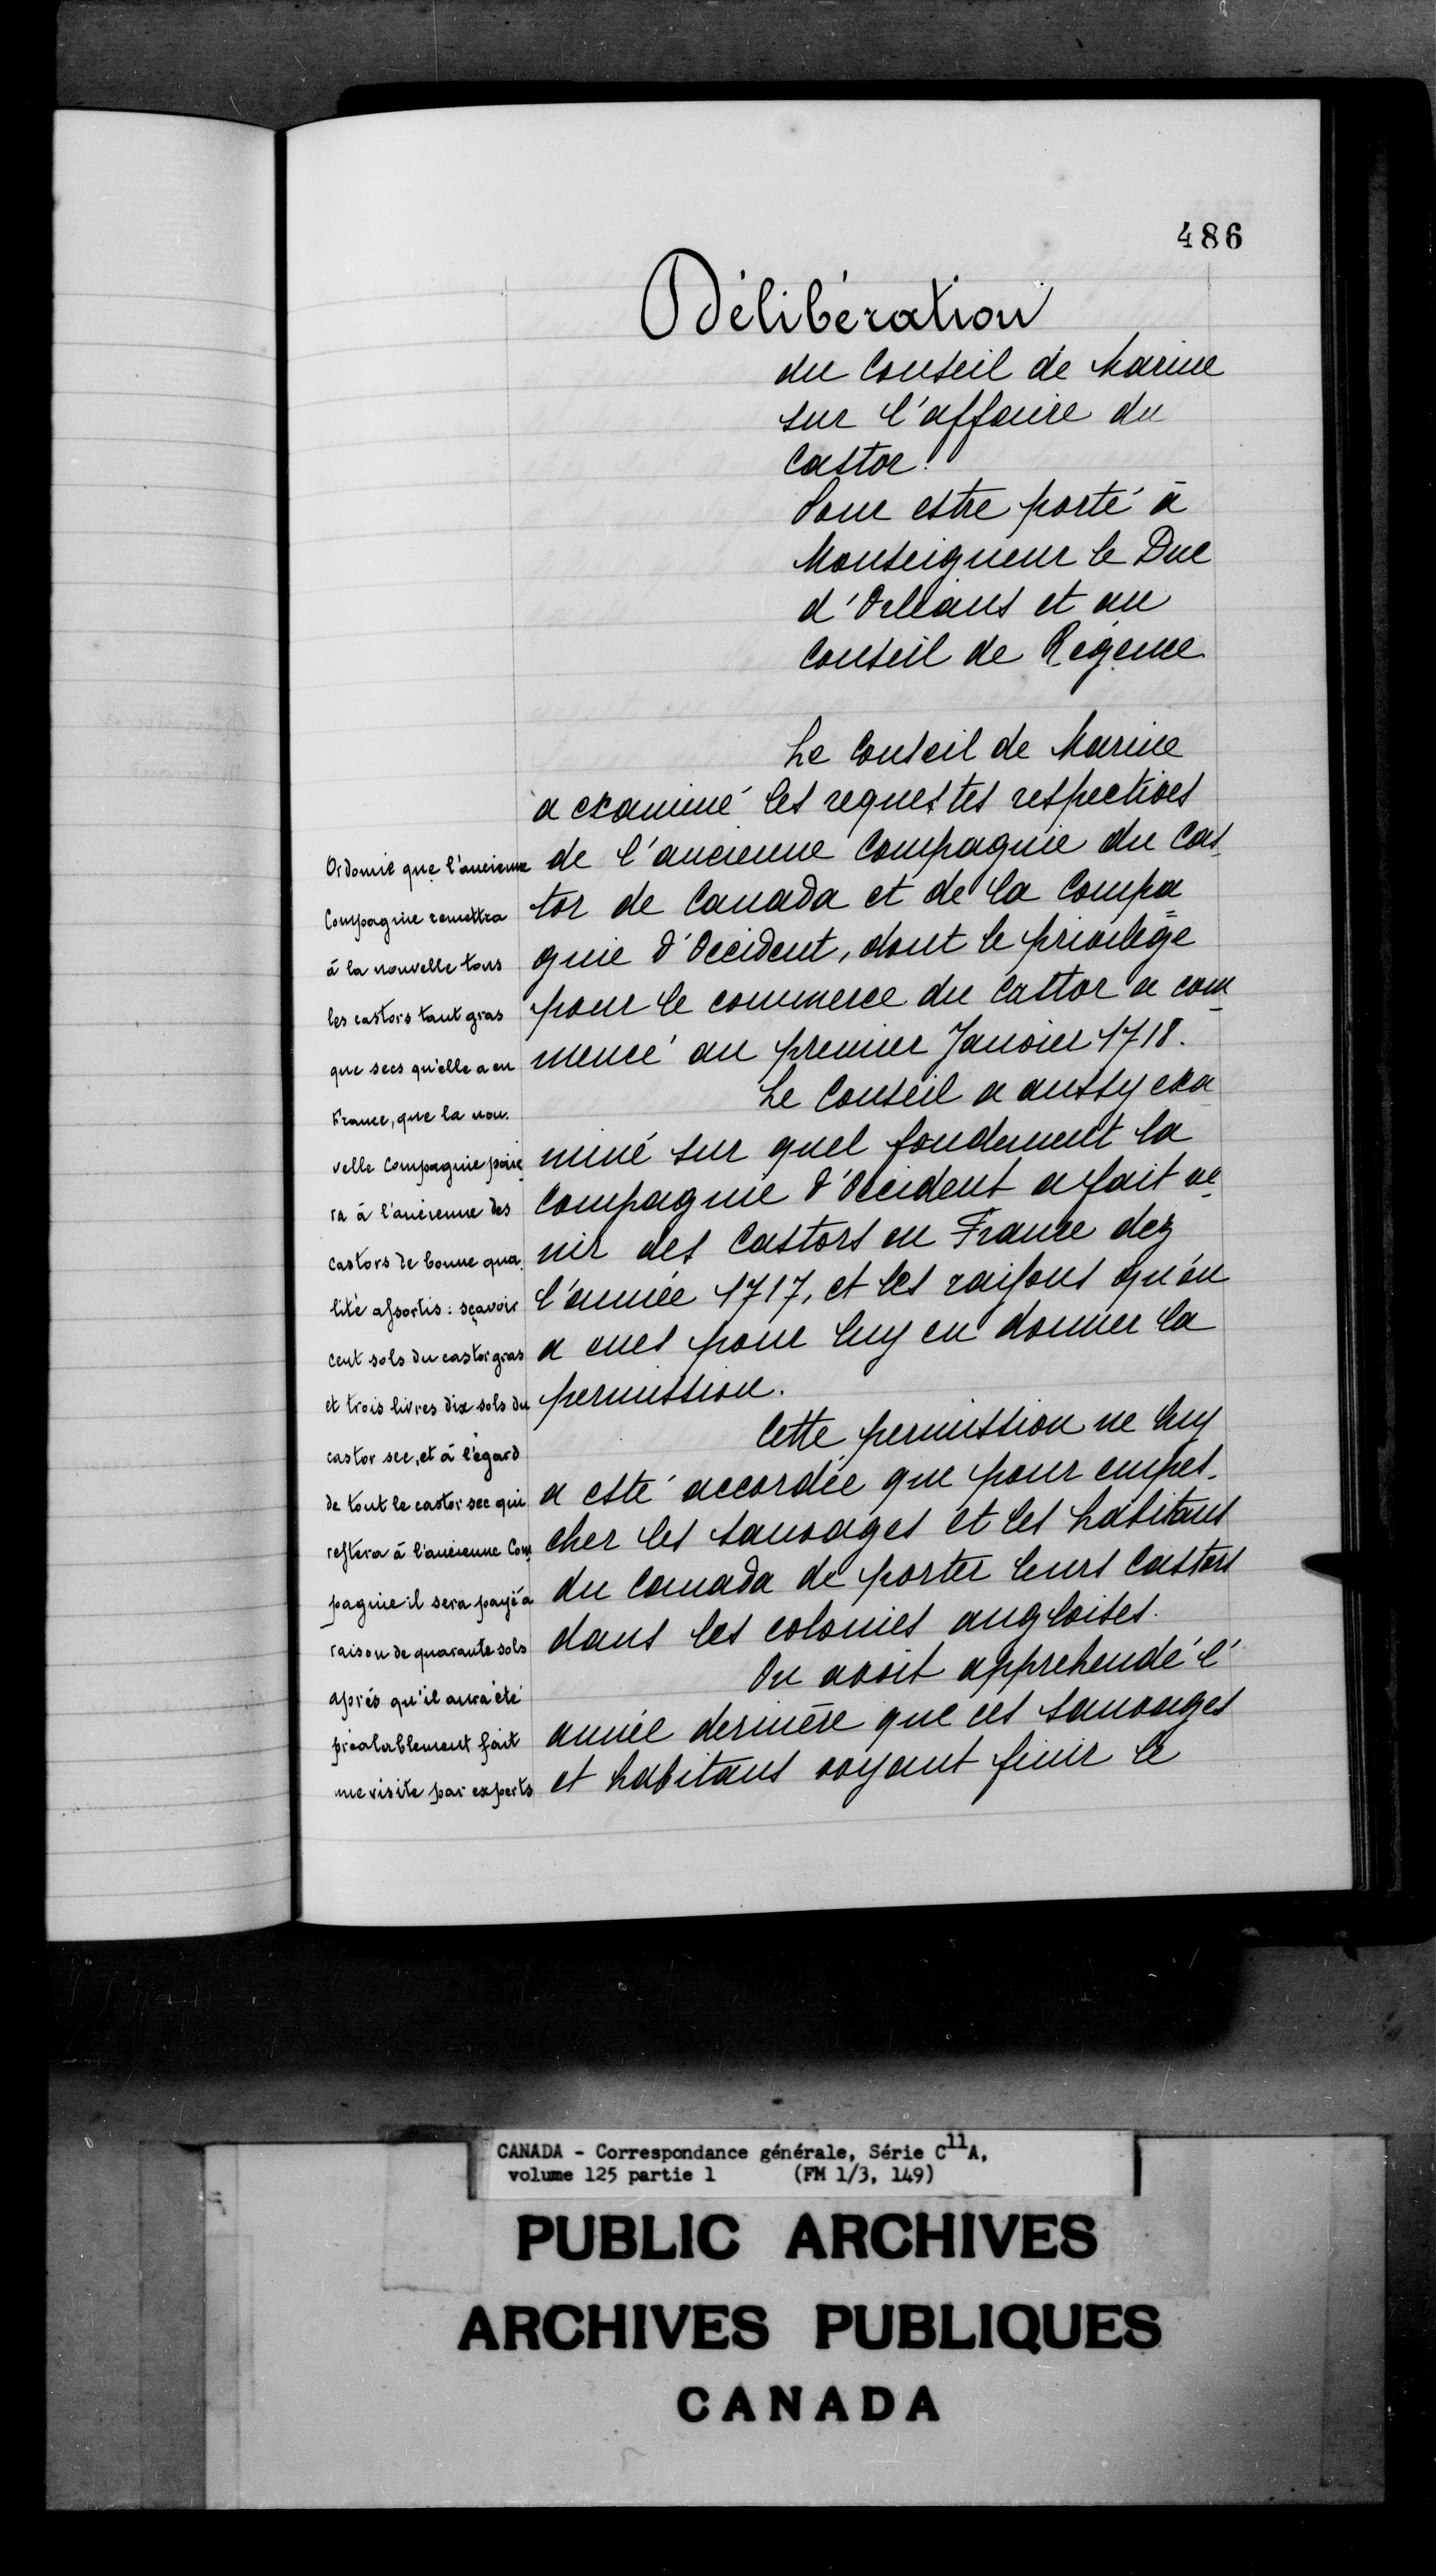 486
Délibération
du Conseil de Marine
sur l'affaire du
Castor.
Pour estre porté à
Monseigneur le Duc
d'Orleans et au
Conseil de Régence
Le Conseil de Marine
a examiné les requestes respectives
de l'ancienne Compagnie du Cas-
tor de Canada et de la Compa=
gnie d'Occident, dont le privilège
pour le commerce du Castor a com-
mencé au premier Janvier 1718.
Le Conseil a aussy exa
miné sur quel fondement la
Compagnie d'Occident a fait ve-
nir des Castors en France dez
l'année 1717, et les raisons qu'on
a eues pour luy en donner la
permission.
Cette permission ne luy
a esté accordée que pour empes-
cher les sauvages et les habitans
du Canada de porter leurs Castors
dans les colonies angloises.
On avoit apprehendé l'
année dernière que ces sauvages
et habitans voyant finir le
Ordonné que l'ancienne
Compagnie remettra
à la nouvelle tous
les castors tant gras
que secs qu'elle a en
France, que la nou-
velle Compagnie paie-
ra à l'ancienne des
castors de bonne qua-
lité assortis: sçavoir
cent sols du castor gras
et trois livres dix sols du
castor sec, et à l'égard
de tout le castor sec qui
restera à l'ancienne Com-
pagnie il sera payé à
raison de quarante sols
après qu'il aura été
préalablement fait
une visite par experts
CANADA - Correspondance générale, Série C11A,
volume 125 partie 1 (FM 1/3, 149)
PUBLIC ARCHIVES
ARCHIVES PUBLIQUES
CANADA